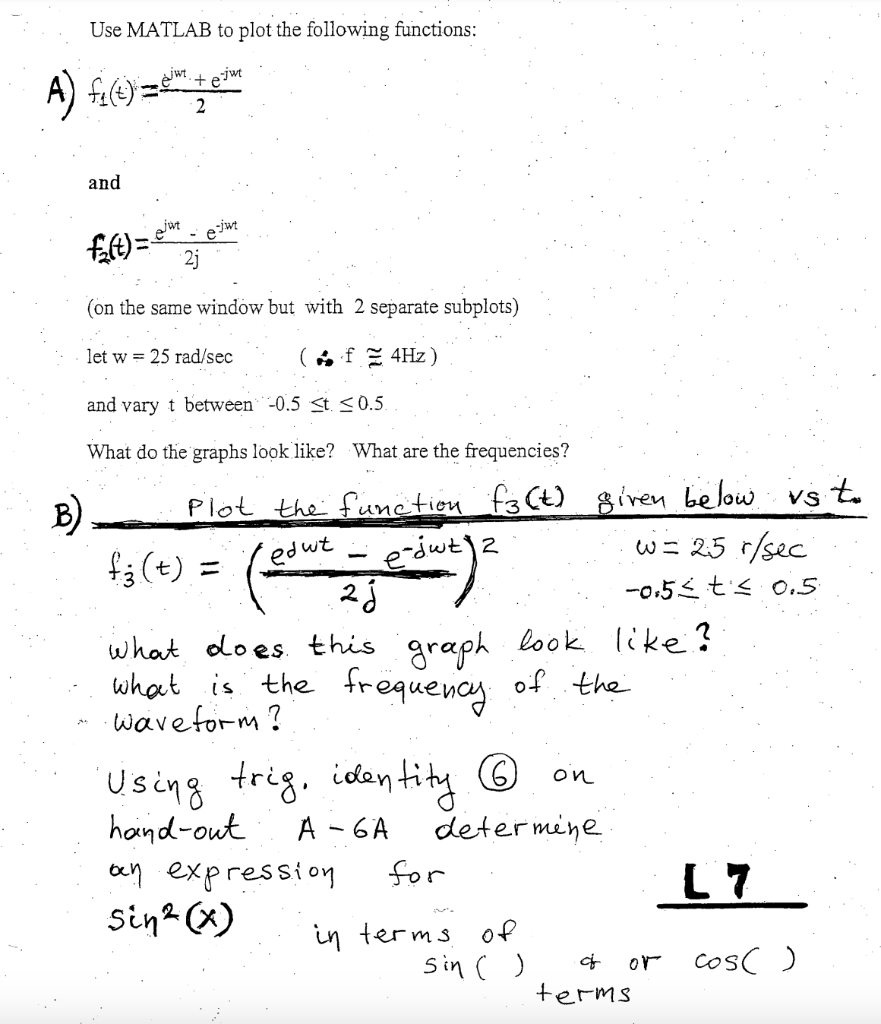 Use MATLAB to plot the following functions:
A) f₁(t) = (e^jwt + e^-jwt) / 2
and
f₂(t) = (e^jwt - e^-jwt) / 2j
(on the same window but with 2 separate subplots)
let w = 25 rad/sec (∴ f ≅ 4Hz)
and vary t between -0.5 ≤ t ≤ 0.5
What do the graphs look like? What are the frequencies?
B) Plot the function f₃(t) given below vs t.
f₃(t) = ((e^jwt - e^-jwt) / 2j)² w = 25 r/sec
-0.5 ≤ t ≤ 0.5
what does this graph look like?
what is the frequency of the
waveform?
Using trig. identity ⑥ on
hand-out A-6A determine
an expression for
L7
sin²(x)
in terms of
sin( ) & or cos( )
terms